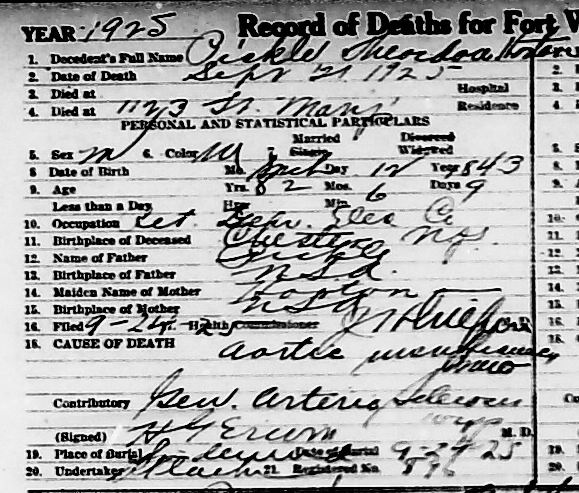 YEAR 1925 Record of Deaths for Fort W
1. Decedent's Full Name Pickle Theodoa Horton
2. Date of Death Sept 21 1925
3. Died at Hospital
4. Died at 1123 St. Marys Residence
PERSONAL AND STATISTICAL PARTICULARS
Married Divorced
5. Sex M 6. Color W 7. Single Widowed
8 Date of Birth Mo. Mch Day 12 Year 1843
9. Age Yrs. 82 Mos. 6 Days 9
Less than a Day Hrs. Min.
10. Occupation Ret Elec Co
11. Birthplace of Deceased Chester N.J.
12. Name of Father Pickle
13. Birthplace of Father U.S.A.
14. Maiden Name of Mother Horton
15. Birthplace of Mother U.S.A.
16. Filed 9-24-25 Health Commissioner
18. CAUSE OF DEATH Aortic
Contributory Gen. Arterio Sclerosis
(Signed) H G Erwin M. D.
19. Place of Burial Date of Burial 9-24-25
20. Undertaker 21. Registered No.